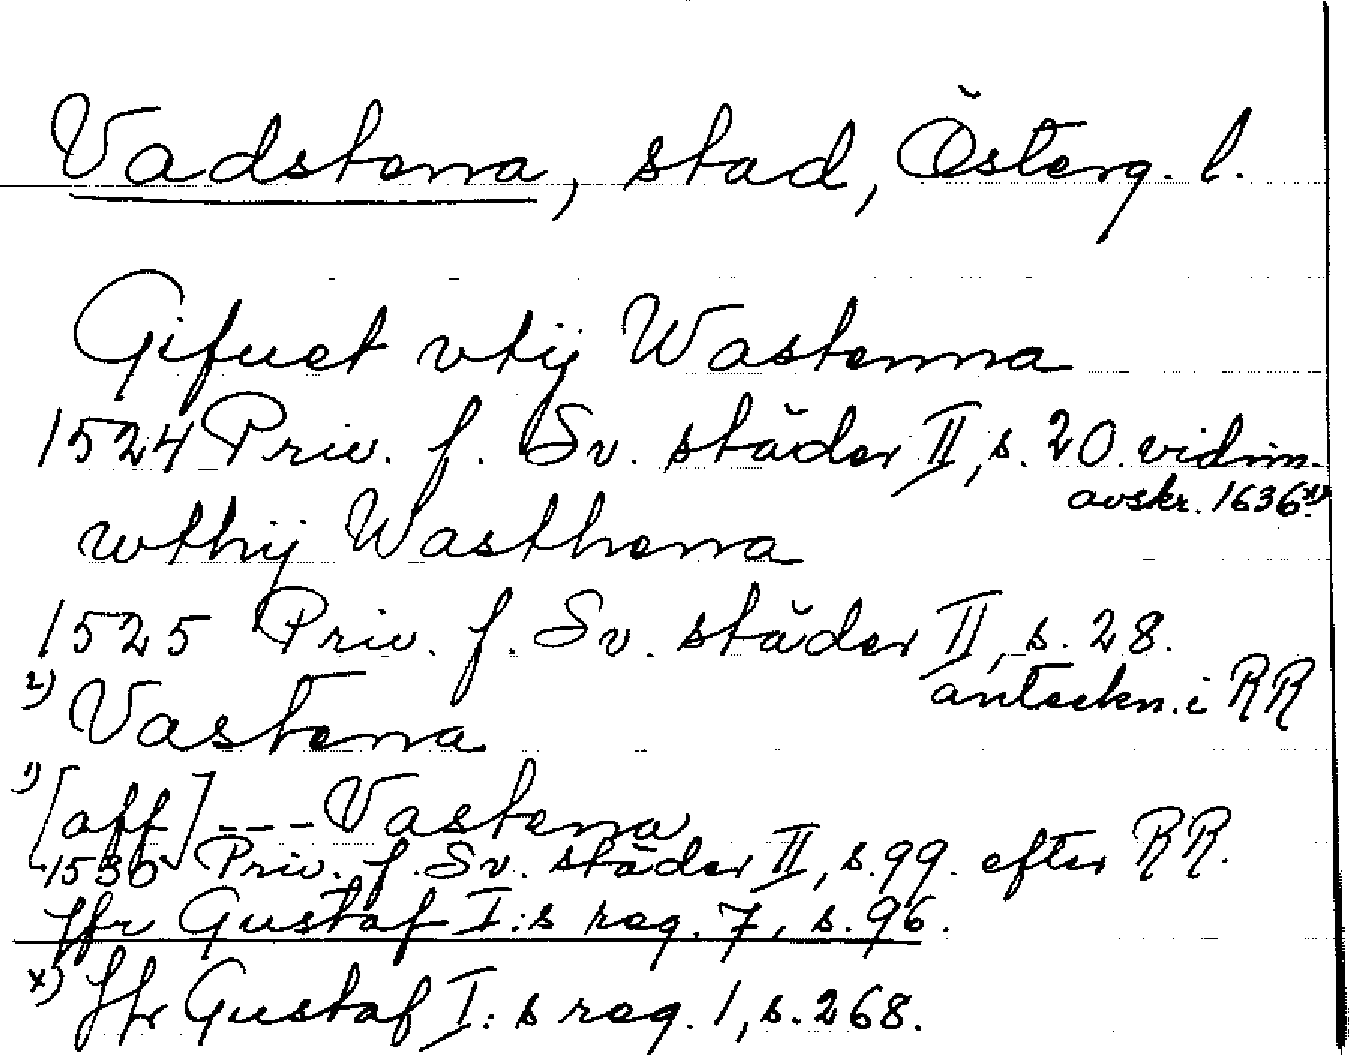 Vadstena, stad, Österg. l.
Gifuet vtij Wastenna
1524 Priv. f. Sv. städer II, s. 20. vidim.
avskr. 1636 x)
wthij Wasthena
1525 Priv. f. Sv. städer II, s. 28.
anteckn. i RR
2) Vastena
1) [aff] --- Vastena
1530 Priv. f. Sv. städer II, s. 99. efter RR.
Jfr Gustaf I:s reg. 7, s. 96.
x) Jfr Gustaf I:s reg. 1, s. 268.